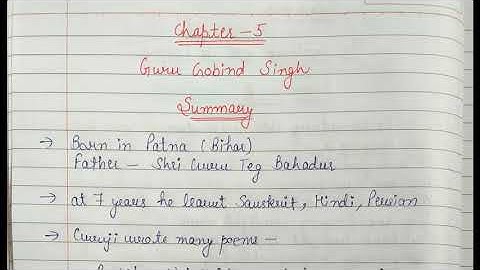 Chapter - 5
Guru Gobind Singh
Summary
→ Born in Patna (Bihar)
Father - Shri Guru Teg Bahadur
→ at 7 years he learnt Sanskrit, Hindi, Persian
→ Guruji wrote many poems -